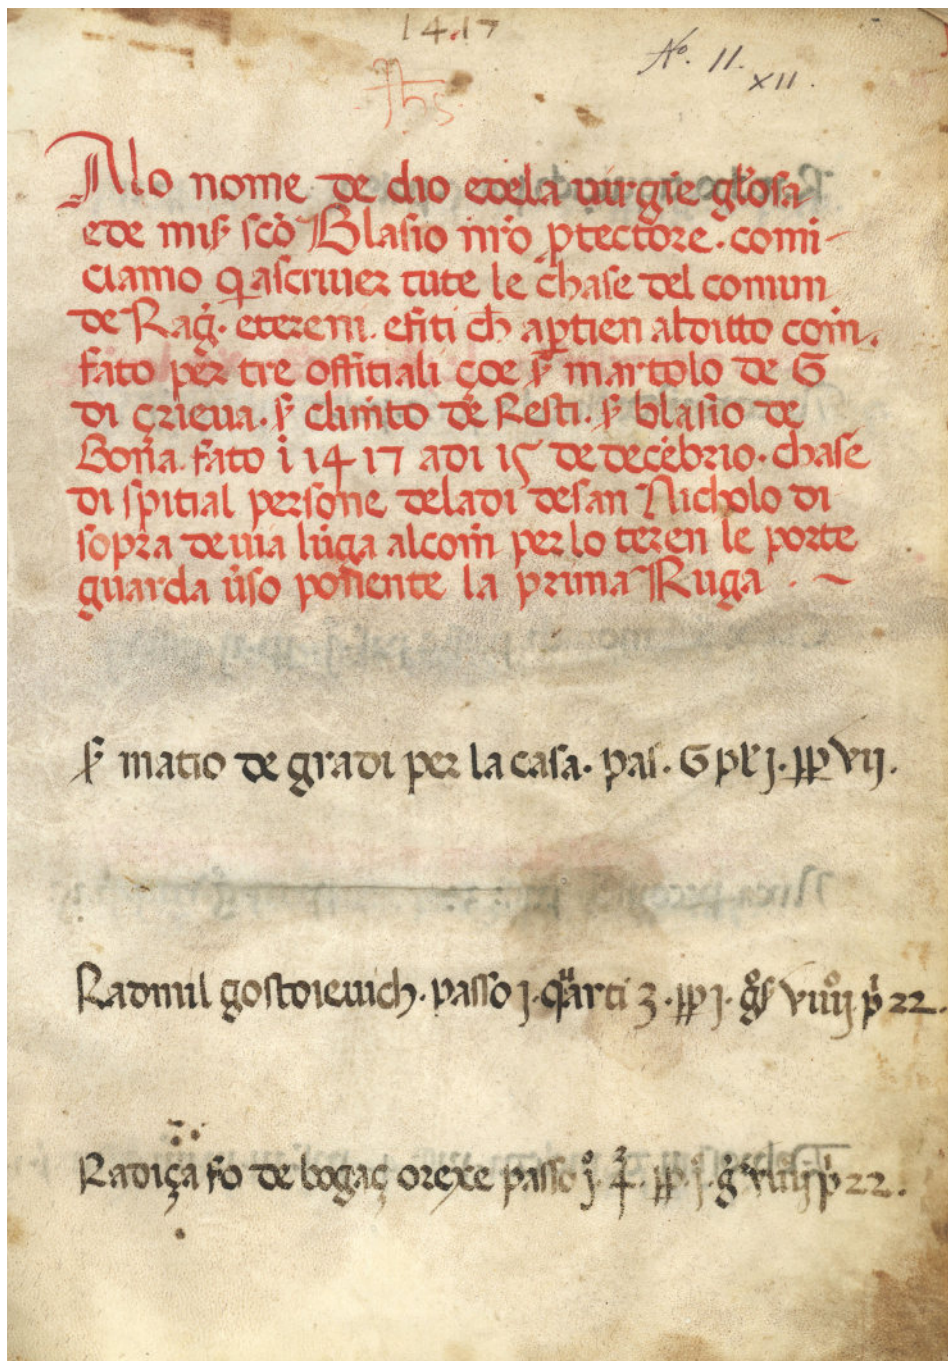 1417
No. 11.
XII.
Jhs
Alo nome de dio edela virgie gl'osa
ede mis' sco Blasio nr'o ptectore. comi-
ciamo q ascriver tute le chase del comun
de Rag'. etereni. efiti ch aptien alditto com.
fato per tre offitiali çoe s' martolo de G
di çrieva. s' clim'to de Resti. s' blasio de
Bona. fato i 1417 adi 15 de decébrio. chase
di spitial persone deladi desan Nicholo di
sopra de via luga alcom per lo teren le porte
guarda v'so ponente la prima Ruga . ~
s' matio de gradi per la casa. pas. G
Radmil gostoievich. passo j. quarti 3. pp j. 22.
Radiça fo de bogaç orexe passo j. pp. j. 22.